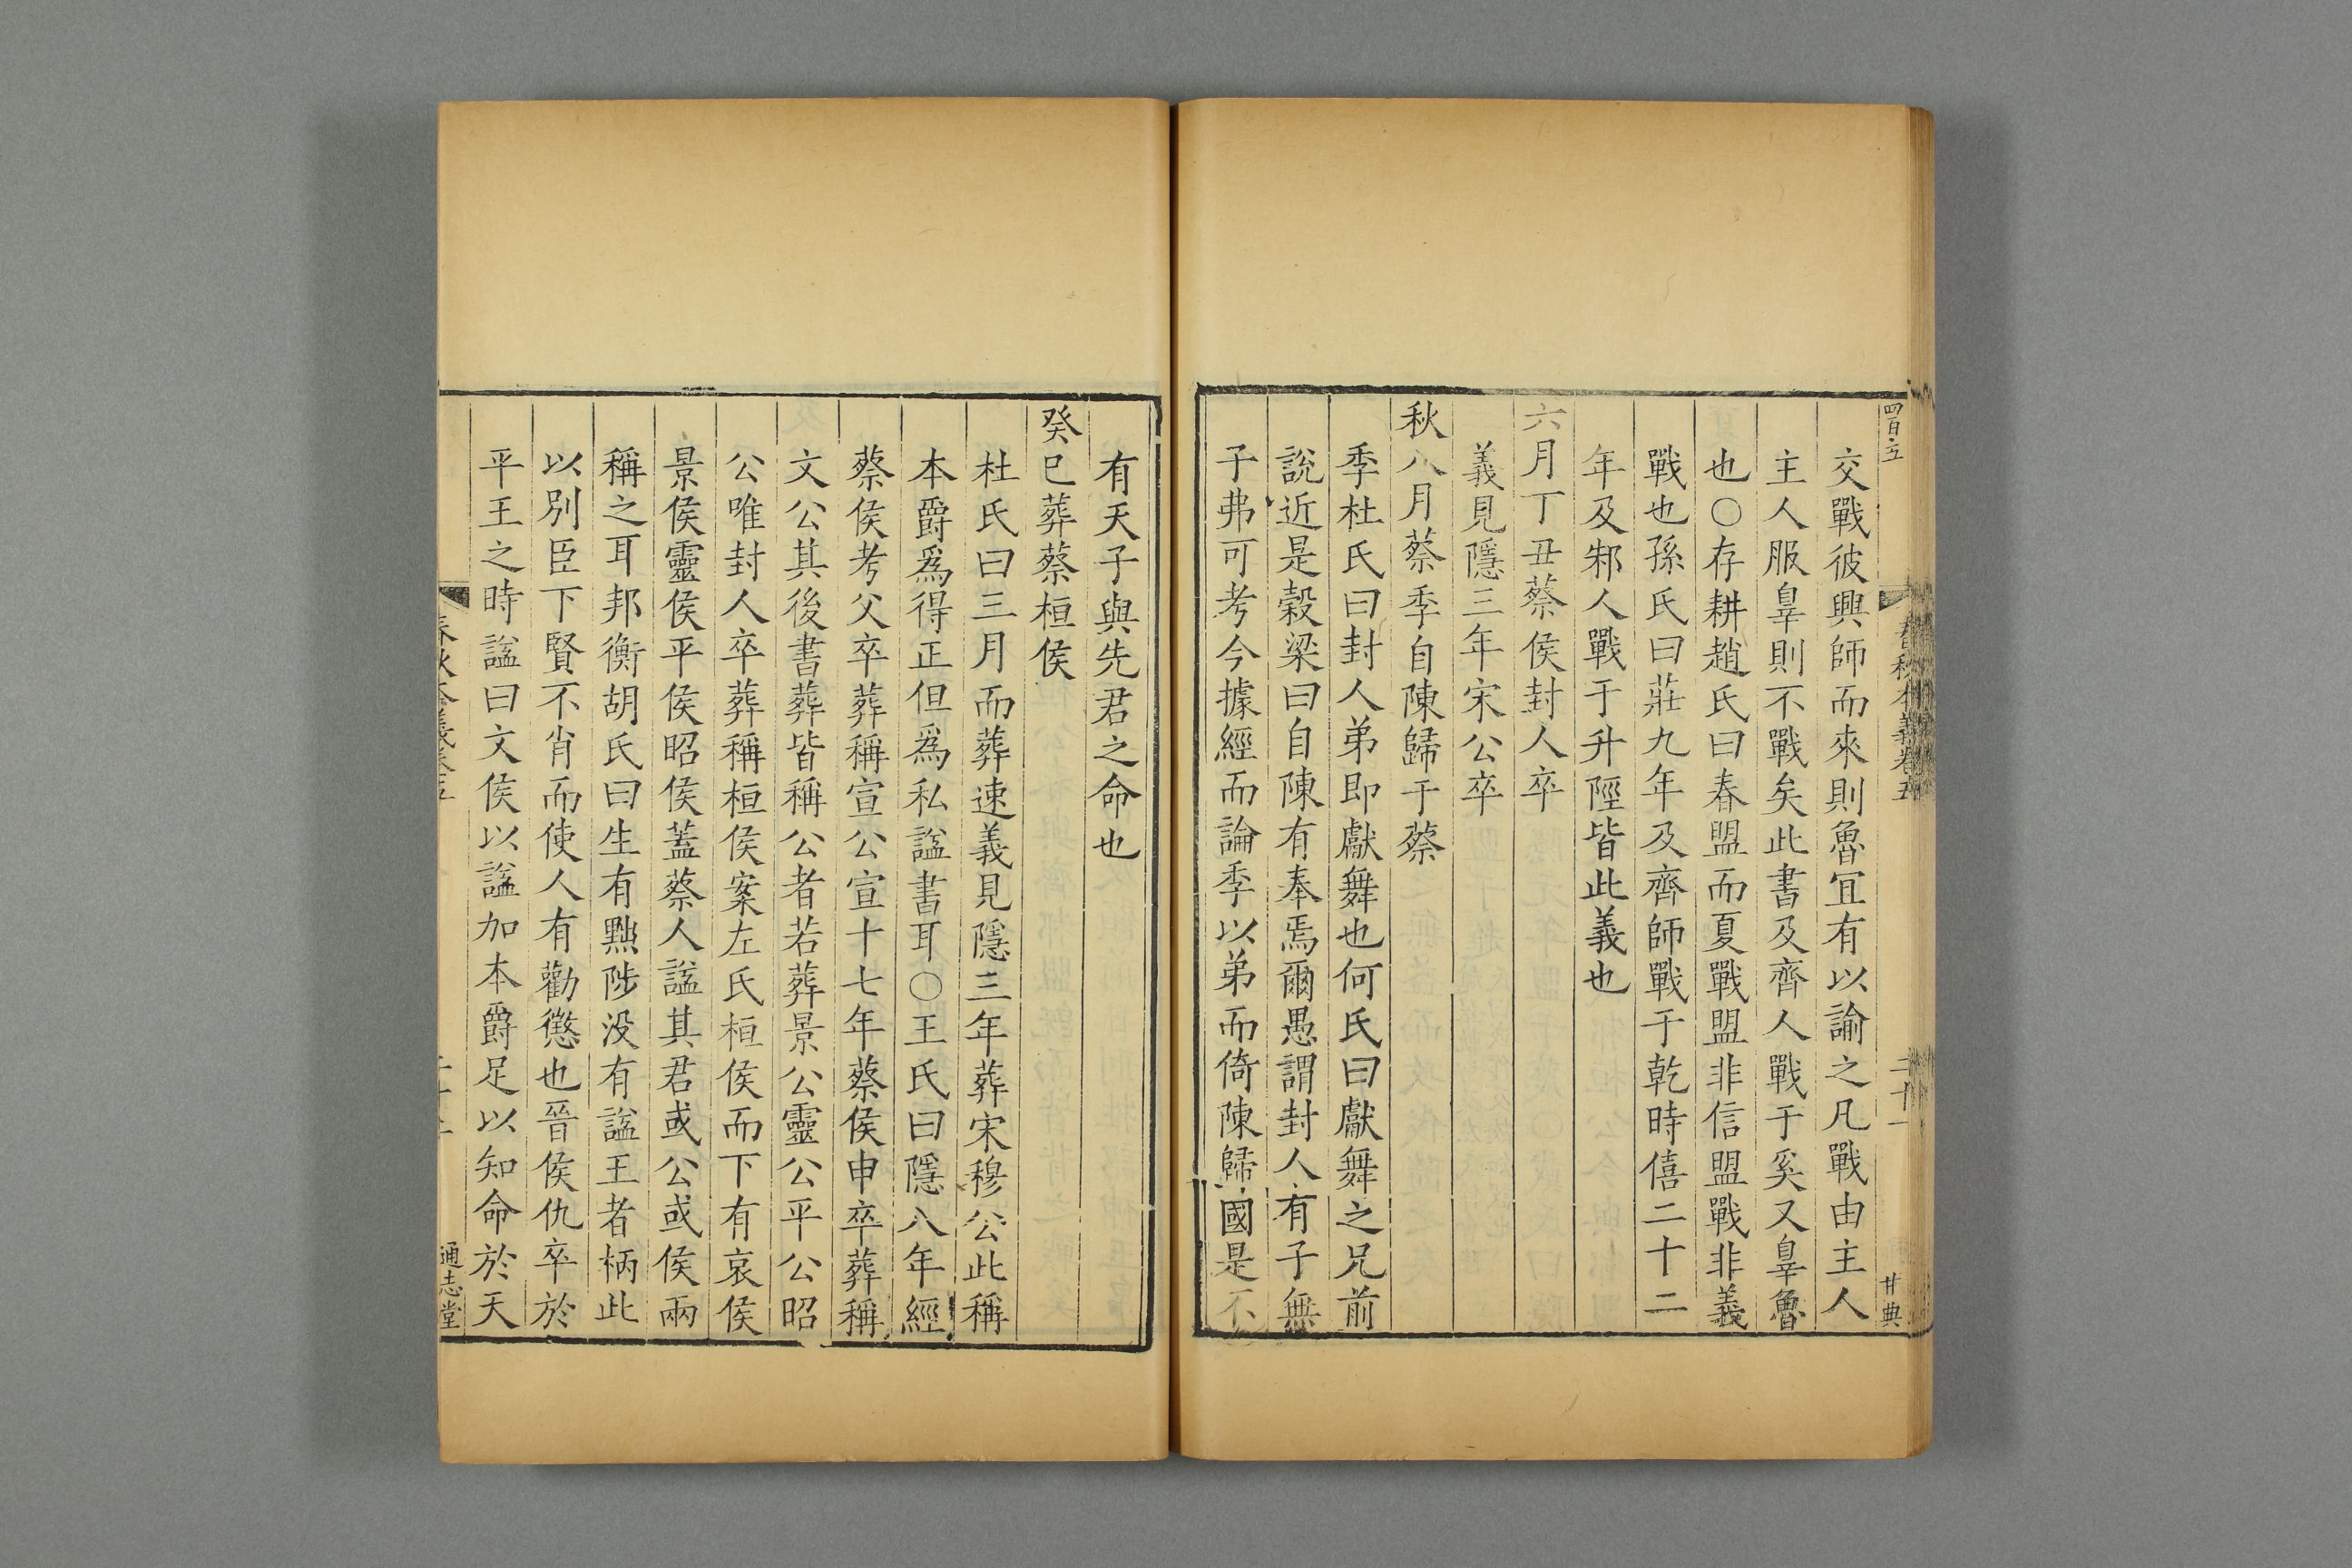 四百五
春秋本義卷五
二十一
廿典
交戰彼興師而來則魯宜有以諭之凡戰由主人
主人服辠則不戰矣此書及齊人戰于奚又辠魯
也○存耕趙氏曰春盟而夏戰盟非信盟戰非義
戰也孫氏曰莊九年及齊師戰于乾時僖二十二
年及邾人戰于升陘皆此義也
六月丁丑蔡侯封人卒
義見隱三年宋公卒
秋八月蔡季自陳歸于蔡
季杜氏曰封人弟即獻舞也何氏曰獻舞之兄前
說近是榖梁曰自陳有奉焉爾愚謂封人有子無
子弗可考今據經而論季以弟而倚陳歸國是不
有天子與先君之命也
癸巳葬蔡桓侯
杜氏曰三月而葬速義見隱三年葬宋穆公此稱
本爵爲得正但爲私諡書耳○王氏曰隱八年經
蔡侯考父卒葬稱宣公宣十七年蔡侯申卒葬稱
文公其後書葬皆稱公者若葬景公靈公平公昭
公唯封人卒葬稱桓侯案左氏桓侯而下有哀侯
景侯靈侯平侯昭侯蓋蔡人諡其君或公或侯兩
稱之耳邦衡胡氏曰生有黜陟没有諡王者柄此
以別臣下賢不肖而使人有勸懲也晉侯仇卒於
平王之時諡曰文侯以諡加本爵足以知命於天
通志堂